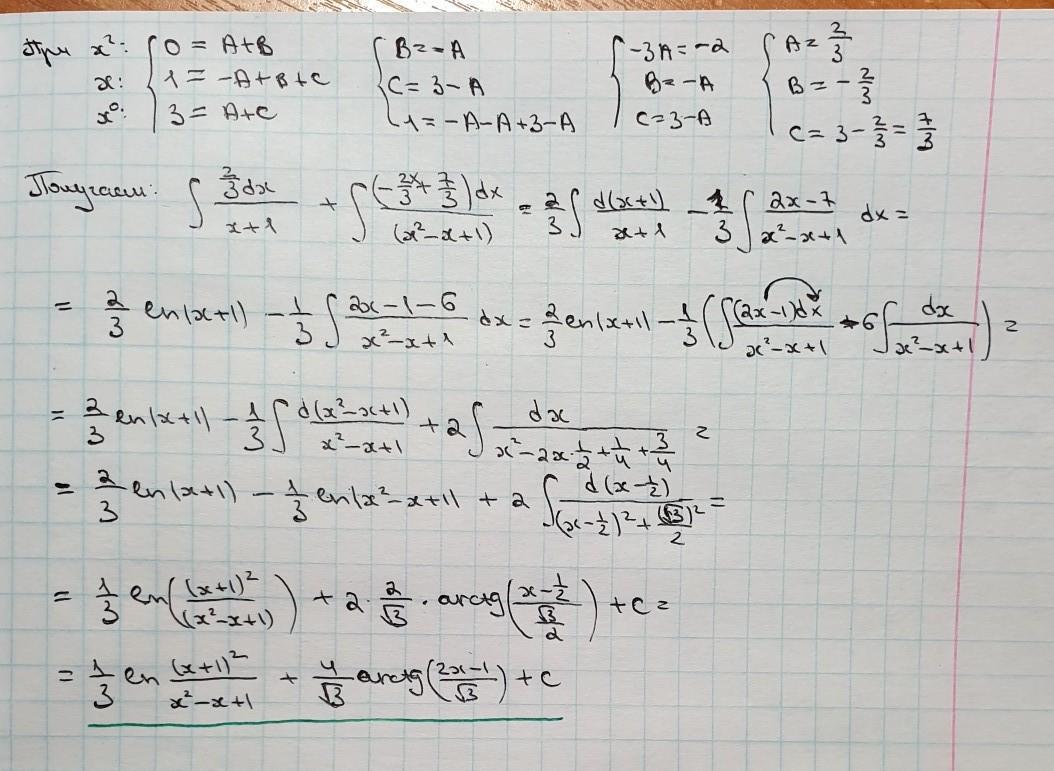 При x²: { 0 = A+B   { B = -A   { -3A = -2   { A = 2/3
x: { 1 = -A+B+C   { C = 3-A   { B = -A   { B = -2/3
x⁰: { 3 = A+C   { 1 = -A-A+3-A   { C = 3-A   { C = 3 - 2/3 = 7/3
Получаем: ∫ (2/3 dx)/(x+1) + ∫ ((-2x/3 + 7/3)dx)/(x²-x+1) = 2/3 ∫ d(x+1)/(x+1) - 1/3 ∫ (2x-7)/(x²-x+1) dx =
= 2/3 ln|x+1| - 1/3 ∫ (2x-1-6)/(x²-x+1) dx = 2/3 ln|x+1| - 1/3 (∫ (2x-1)dx/(x²-x+1) - 6∫ dx/(x²-x+1)) =
= 2/3 ln|x+1| - 1/3 ∫ d(x²-x+1)/(x²-x+1) + 2∫ dx/(x²-2x·1/2+1/4+3/4) =
= 2/3 ln|x+1| - 1/3 ln|x²-x+1| + 2 ∫ d(x-1/2)/((x-1/2)²+(√3)²/2) =
= 1/3 ln((x+1)²/(x²-x+1)) + 2·2/√3·arctg((x-1/2)/(√3/2)) + c =
= 1/3 ln (x+1)²/(x²-x+1) + 4/√3 arctg((2x-1)/√3) + c